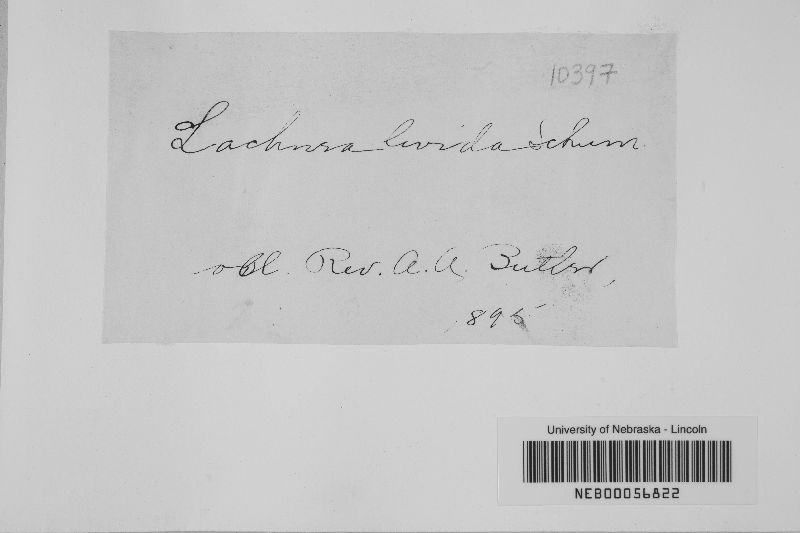 10397
Lachnea livida Schum.
Rev. A. A. Butler,
1895
University of Nebraska - Lincoln
NEB00056822